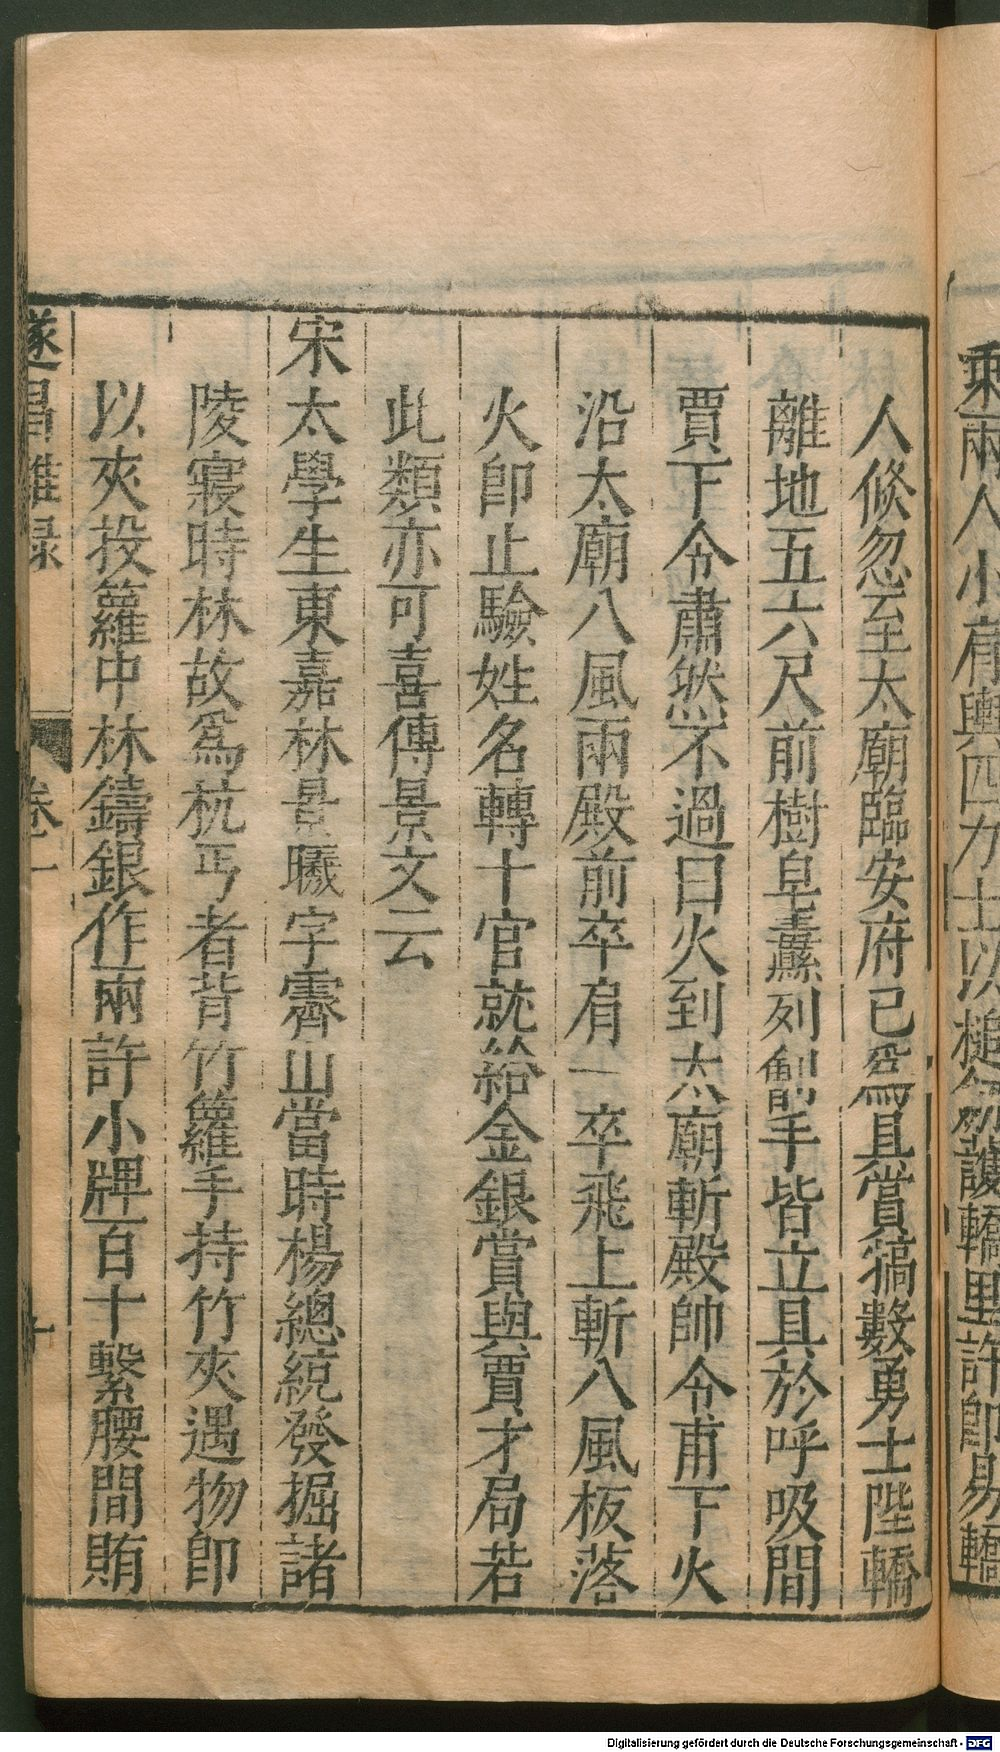 乘兩人小肩輿四力士以搥劒護轎里許卽易轎
人倐忽至太廟臨安府已爲具賞犒數勇士陛轎
離地五六尺前樹皁纛列劊手皆立具於呼吸間
賈下令肅然不過曰火到太廟斬殿帥令甫下火
沿太廟八風兩殿前卒肩一卒飛上斬八風板落
火卽止驗姓名轉十官就給金銀賞與賈才局若
此類亦可喜傳景文云
宋太學生東嘉林景曦字霽山當時楊總統發掘諸
陵寢時林故爲杭丐者背竹籮手持竹夾遇物卽
以夾投籮中林鑄銀作兩許小牌百十繫腰間賄
遂昌雜録
卷一
十
Digitalisierung gefördert durch die Deutsche Forschungsgemeinschaft - DFG